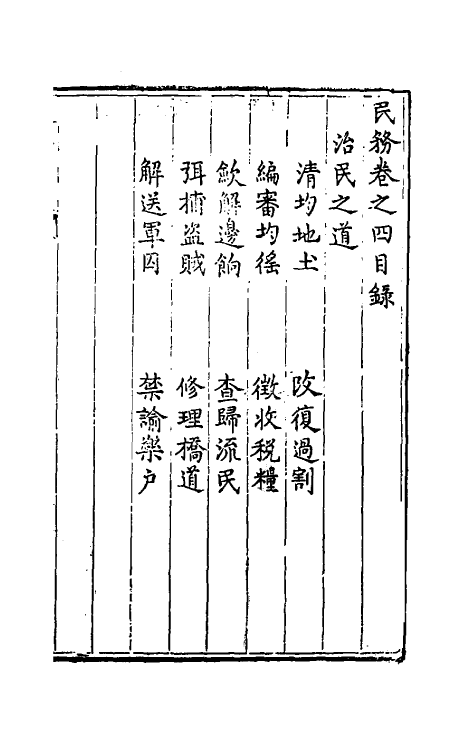 民務卷之四目錄
治民之道
清均地土　改復過割
編審均徭　徵收稅糧
歛解邊餉　查歸流民
弭捕盜賊　修理橋道
解送軍囚　禁諭樂户